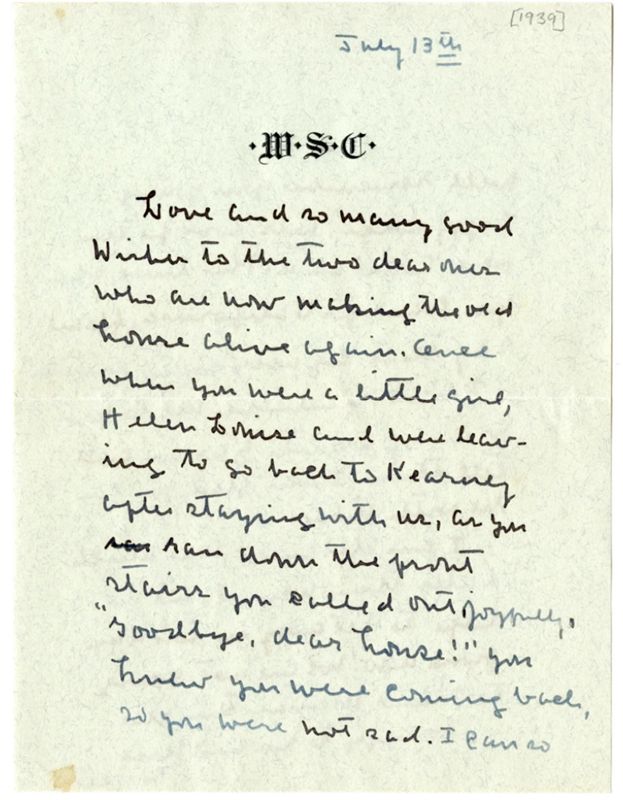 [1939]
July 13th
·W·S·C·
Love and so many good
Wishes to the two dear ones
who are now making the old
house alive again. Once
when you were a little girl,
Helen Louise and were leav-
ing to go back to Kearney
after staying with us, as you
ran down the front
stairs you called out joyfully,
"Goodbye, dear house!" You
knew you were coming back,
so you were not sad. I can so